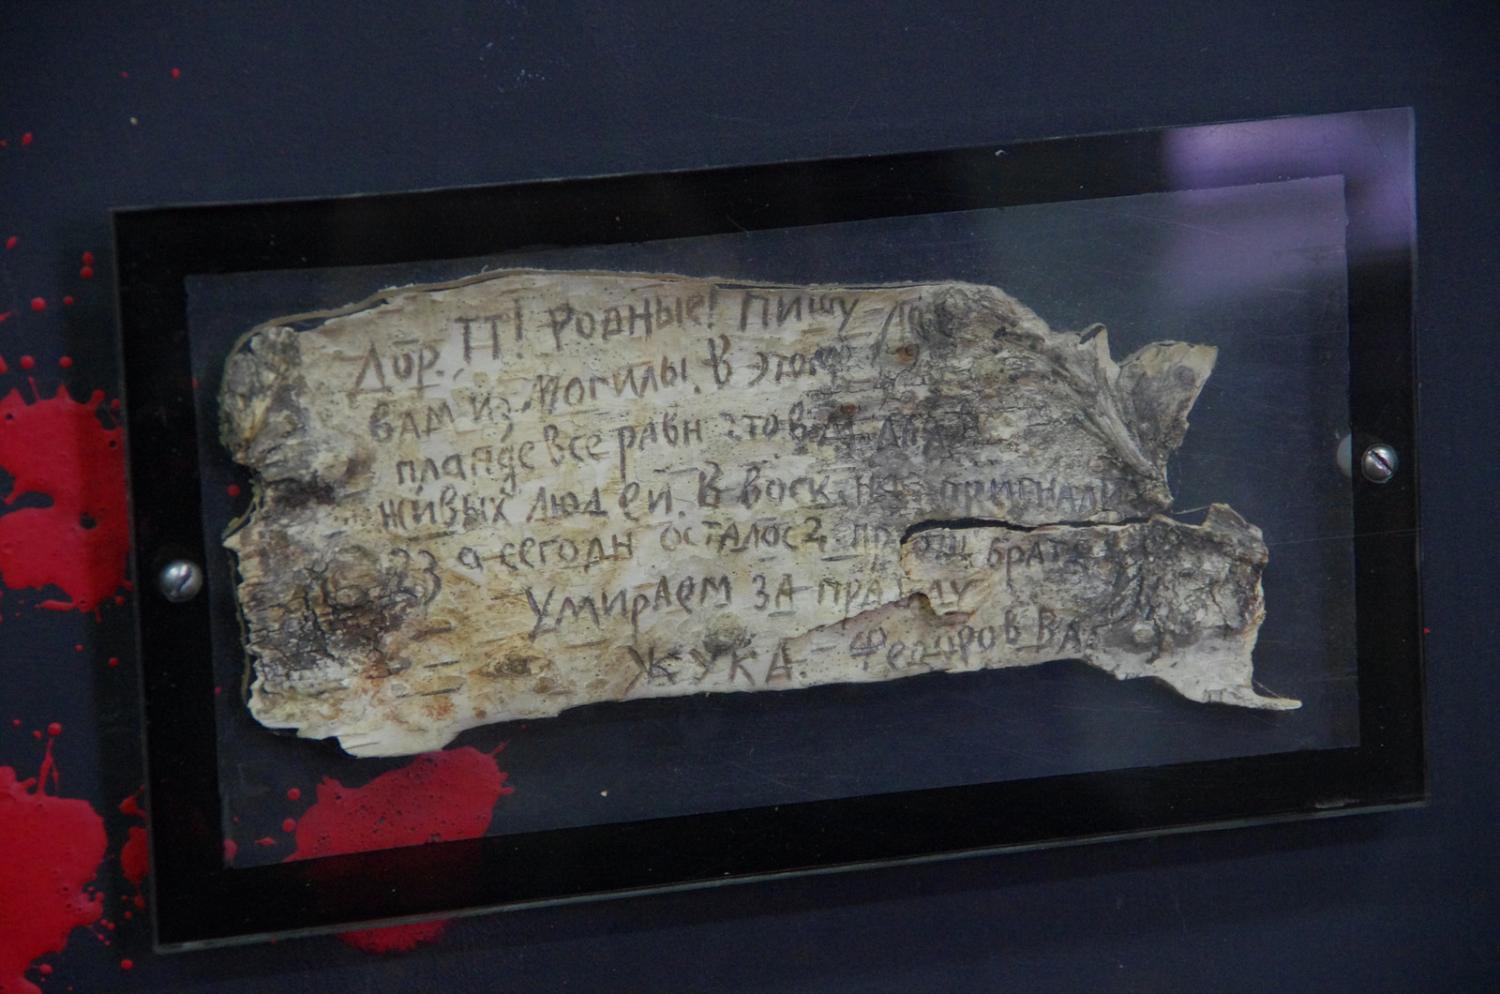 Дор. ТТ! Родные! Пишу
вам из могилы. В этом
плапде все равн
живых людей. В воск.
23 а сегодн осталос 2, брат
Умираем за правду
ЖУКА. Федоров ВА